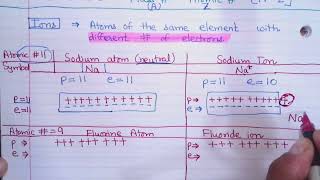 (A) Atomic # (N-Z)
Z
Ions → Atoms of the same element with
different # of electrons.
Atomic #11
Symbol
Sodium atom (neutral)
Na
Sodium Ion
Na⁺
p=11 e=11
p=11 e=10
p=11 +++++++++++
e=11 -----------
p→ +++++++++++
e→ ----------
Na
Atomic #=9 Fluorine Atom
Fluoride ion
p→ +++ +++ +++
e→
p→ +++ +++ +++
e→